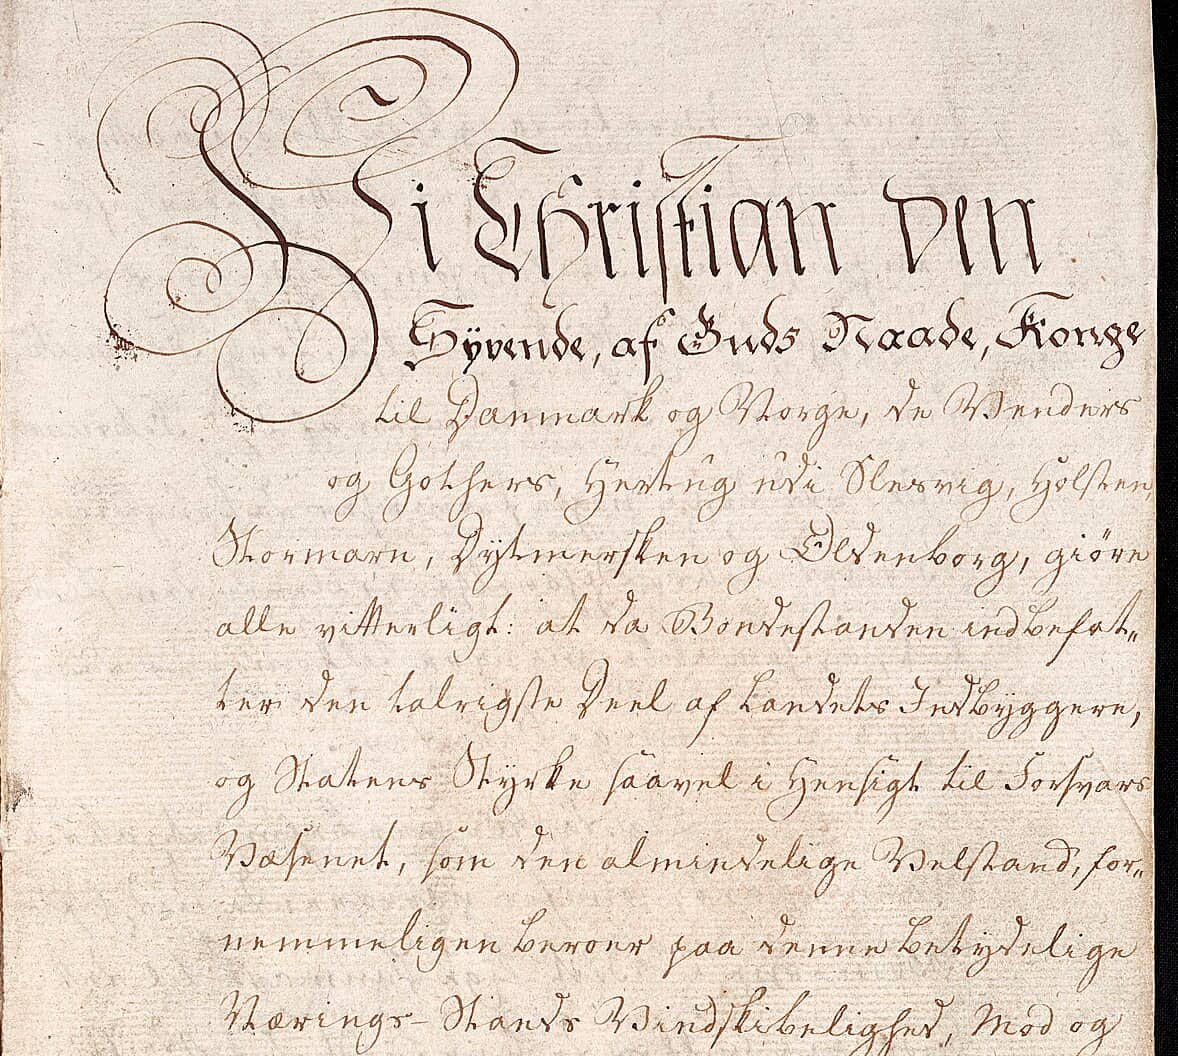 Vi Christian den
Syvende, af Guds Naade, Konge
til Danmark og Norge, de Venders
og Gothers, Hertug udi Slesvig, Holsten,
Stormarn, Dytmersken og Oldenborg, giöre
alle vitterligt: at da Bondestanden indbefat„
ter den talrigste Deel af Landets Indbyggere,
og Statens Styrke saavel i Hensigt til Forsvars
Væsenet, som den almindelige Velstand, for„
nemmeligen beroer paa denne betydelige
Nærings-Stands Vindskibelighed, Mod og